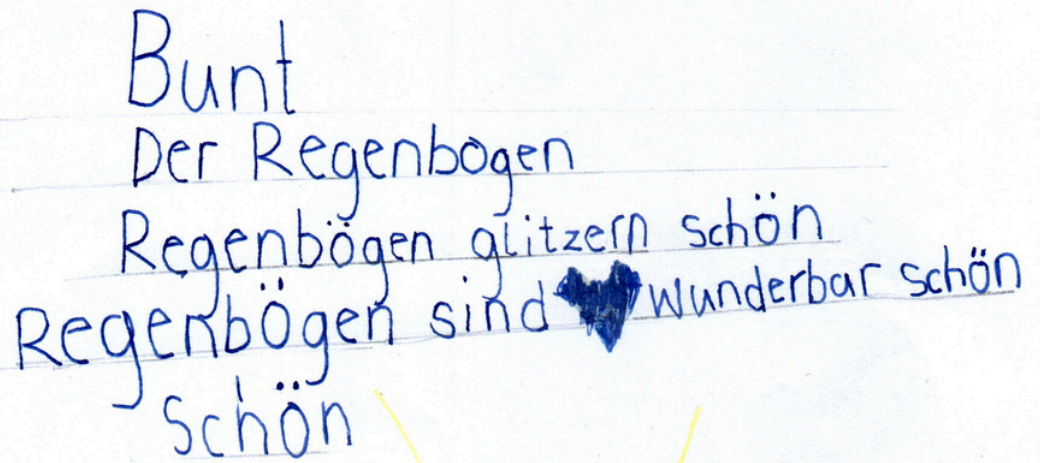 Bunt
Der Regenbogen
Regenbögen glitzern schön
Regenbögen sind wunderbar schön
Schön